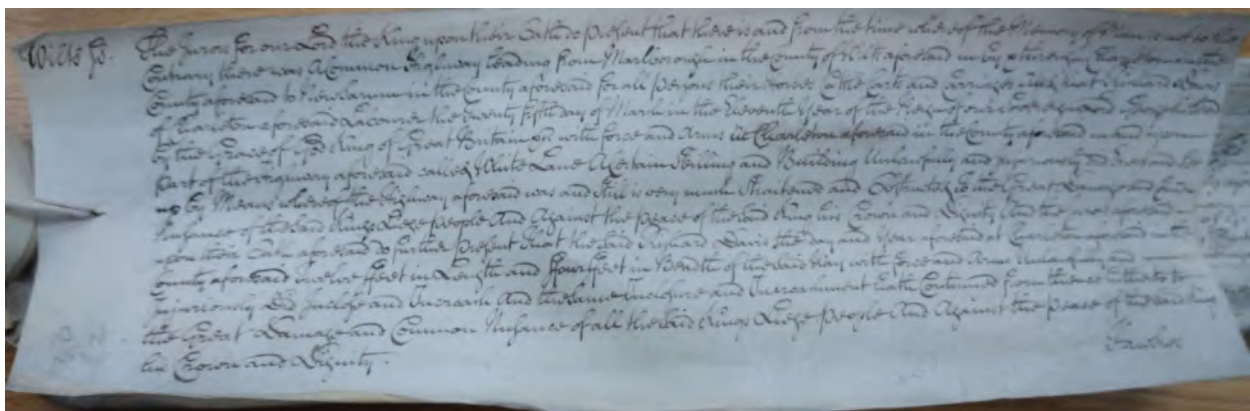 Wilts ss. The Jurors for our Lord the King upon their Oath do Present that there is and from the time whereof the Memory of Man is not to the
Contrary there was A Common Highway leading from Marlborough in the County of Wilts aforesaid in by & through Charleton in the
County aforesaid to New Sarum in the County aforesaid for all Persons their Horses Coaches Carts and Carriages And that Richard Davis
of Charleton aforesaid Labourer the Twenty fifth day of March in the Eleventh Year of the Reign of our
by the Grace of God King of Great Britain &c with force and Arms at Charleton aforesaid in the County aforesaid in and upon
Part of the Highway aforesaid called Lane A Certain and Building Unlawfully and injuriously did
up by Means whereof the Highway aforesaid was and still is very much Straitened and Obstructed to the Great Damage and Common
Nusance of the said Kings Liege People And Against the Peace of the said King his Crown and Dignity And the Jurors aforesaid
upon their Oath aforesaid do further Present that the said Richard Davis the day and Year aforesaid at Charleton aforesaid in the
County aforesaid Twelve ffeet in Length and ffour ffeet in Bredth of the said Way with force and Arms Unlawfully and
injuriously Did Inclose and Incroach And the same Inclosure and Incroachment hath Continued from thence hitherto to
the Great Damage and Common Nusance of all the said Kings Liege People And Against the Peace of the said King
his Crown and Dignity.